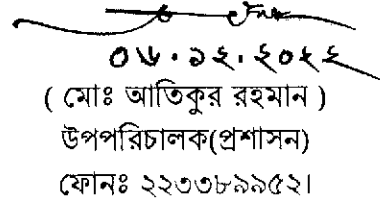 ০৬.১২.২০২২
( মোঃ আতিকুর রহমান )
উপপরিচালক(প্রশাসন)
ফোনঃ ২২৩৩৮৯৯৫২।